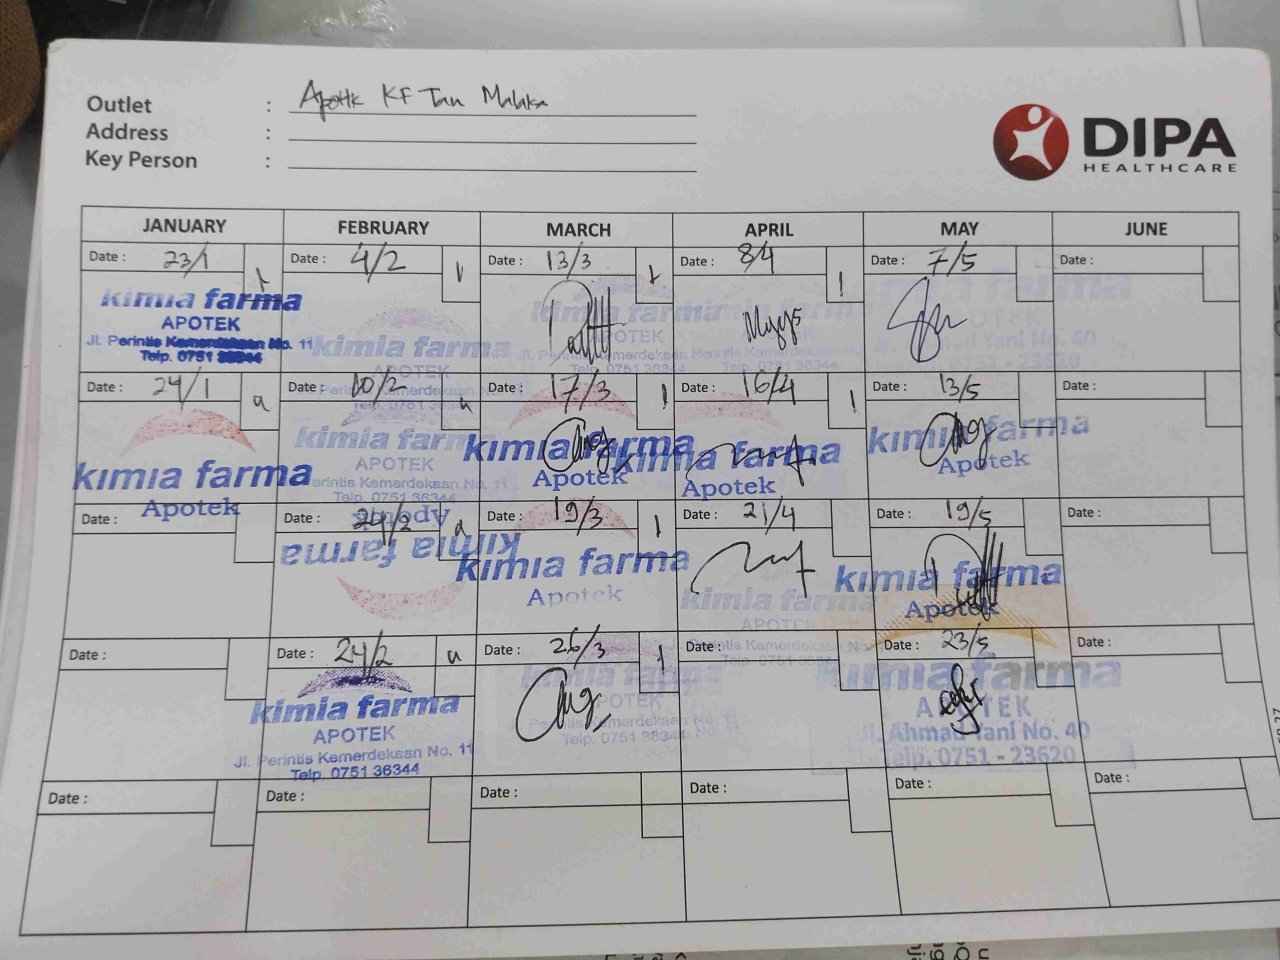 Outlet : Apotik KF Tan Malaka
Address :
Key Person :
DIPA
HEALTHCARE
JANUARY FEBRUARY MARCH APRIL MAY JUNE
Date : 23/1 Date : 4/2 Date : 13/3 Date : 8/4 Date : 7/5 Date :
kimia farma
APOTEK
Jl. Perintis Kemerdekaan No. 11
Telp. 0751 36344
kimia farma
APOTEK
Date : 24/1 Date : 10/2 Date : 17/3 Date : 16/4 Date : 13/5 Date :
kimia farma
Apotek
kimia farma
APOTEK
Perintis Kemerdekaan No. 11
Telp. 0751 36344
kimia farma
Apotek
kimia farma
Apotek
kimia farma
Apotek
Date : Date : 24/2 Date : 19/3 Date : 21/4 Date : 19/5 Date :
kimia farma
Apotek
kimia farma
Apotek
kimia farma
APOTEK
kimia farma
Apotek
Date : Date : 24/2 Date : 26/3 Date : Date : 23/5 Date :
kimia farma
APOTEK
Jl. Perintis Kemerdekaan No. 11
Telp. 0751 36344
kimia farma
APOTEK
Jl. Ahmad Yani No. 40
Telp. 0751 - 23620
Date : Date : Date : Date : Date : Date :